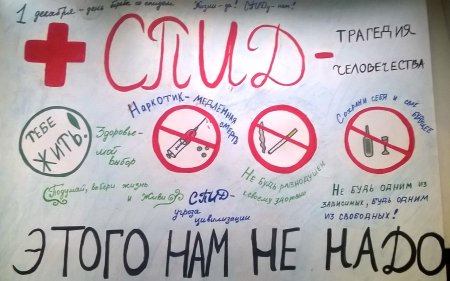 1 декабря - день борьбы со спидом Жизни - да! СПИДу - нет!
СПИД -
ТРАГЕДИЯ
ЧЕЛОВЕЧЕСТВА
ТЕБЕ
ЖИТЬ!
Здоровье-
мой
выбор
Наркотик - медленная смерть
Не будь равнодушен
к своему здоровью
Сохрани себя и свое будущее
Подумай, выбери жизнь
и Живи
СПИД-
угроза
цивилизации
Не будь одним из
зависимых, будь одним
из свободных!
ЭТОГО НАМ НЕ НАДО